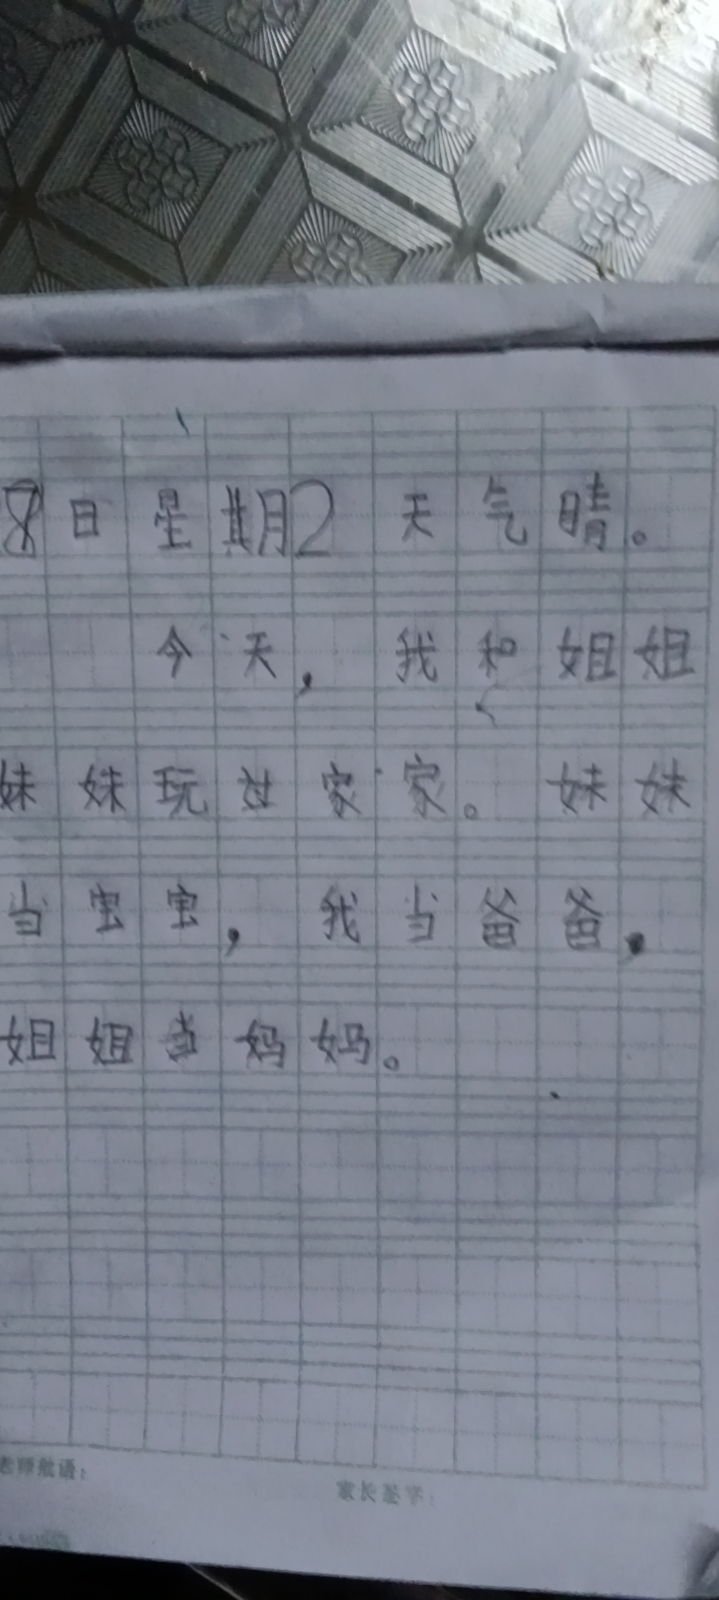 8日星期2 天气晴。
今天，我和姐姐
妹妹玩过家家。妹妹
当宝宝，我当爸爸，
姐姐当妈妈。
老师激语：
家长签字：